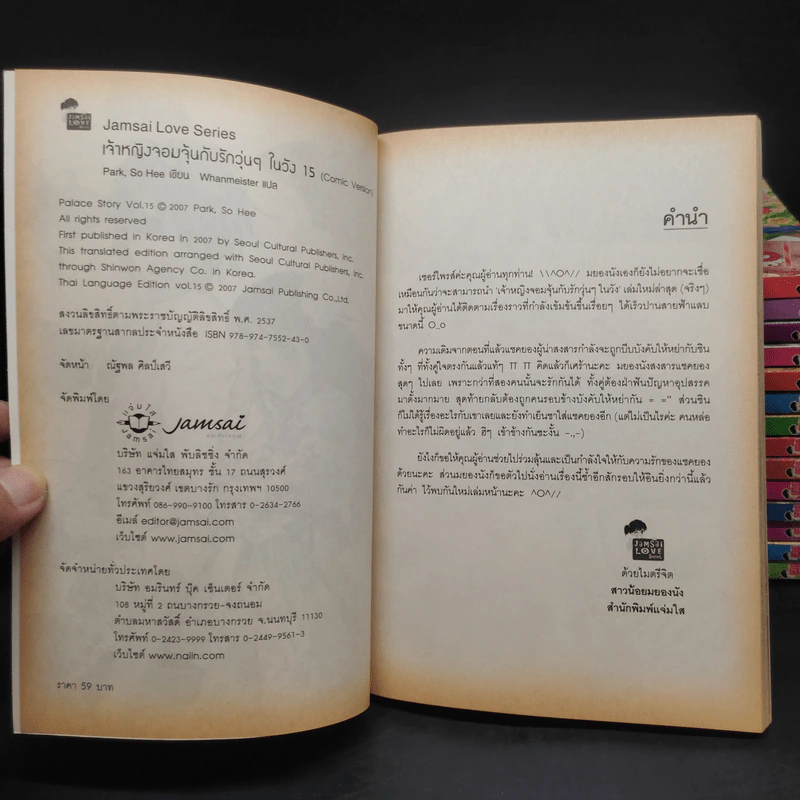 JAMSAI
LOVE
Jamsai Love Series
เจ้าหญิงจอมจุ้นกับรักวุ่นๆ ในวัง 15 (Comic Version)
Park, So Hee เขียน Whanmeister แปล
Palace Story Vol.15 © 2007 Park, So Hee
All rights reserved
First published in Korea in 2007 by Seoul Cultural Publishers, Inc.
This translated edition arranged with Seoul Cultural Publishers, Inc.
through Shinwon Agency Co. in Korea.
Thai Language Edition vol.15 © 2007 Jamsai Publishing Co.,Ltd.
สงวนลิขสิทธิ์ตามพระราชบัญญัติลิขสิทธิ์ พ.ศ. 2537
เลขมาตรฐานสากลประจำหนังสือ ISBN 978-974-7552-43-0
จัดหน้า ณัฐพล ศิลป์เสวี
จัดพิมพ์โดย
แจ่มใส
jamsai
Jamsai
บริษัท แจ่มใส พับลิชชิ่ง จำกัด
163 อาคารไทยสมุทร ชั้น 17 ถนนสุรวงศ์
แขวงสุริยวงศ์ เขตบางรัก กรุงเทพฯ 10500
โทรศัพท์ 086-990-9100 โทรสาร 0-2634-2766
อีเมล์ editor@jamsai.com
เว็บไซต์ www.jamsai.com
จัดจำหน่ายทั่วประเทศโดย
บริษัท อมรินทร์ บุ๊ค เซ็นเตอร์ จำกัด
108 หมู่ที่ 2 ถนนบางกรวย-จงถนอม
ตำบลมหาสวัสดิ์ อำเภอบางกรวย จ.นนทบุรี 11130
โทรศัพท์ 0-2423-9999 โทรสาร 0-2449-9561-3
เว็บไซต์ www.naiin.com
ราคา 59 บาท
คำนำ
เซอร์ไพรส์ค่ะคุณผู้อ่านทุกท่าน! \\^O^// มยองนังเองก็ยังไม่อยากจะเชื่อ
เหมือนกันว่าจะสามารถนำ 'เจ้าหญิงจอมจุ้นกับรักวุ่นๆ ในวัง' เล่มใหม่ล่าสุด (จริงๆ)
มาให้คุณผู้อ่านได้ติดตามเรื่องราวที่กำลังเข้มข้นขึ้นเรื่อยๆ ได้เร็วปานสายฟ้าแลบ
ขนาดนี้ O_o
ความเดิมจากตอนที่แล้วแชคยองผู้น่าสงสารกำลังจะถูกบีบบังคับให้หย่ากับชิน
ทั้งๆ ที่ทั้งคู่ใจตรงกันแล้วแท้ๆ π π คิดแล้วก็เศร้านะคะ มยองนังสงสารแชคยอง
สุดๆ ไปเลย เพราะกว่าที่สองคนนั้นจะรักกันได้ ทั้งคู่ต้องฝ่าฟันปัญหาอุปสรรค
มาตั้งมากมาย สุดท้ายกลับต้องถูกคนรอบข้างบังคับให้หย่ากัน = =" ส่วนชิน
ก็ไม่ได้รู้เรื่องอะไรกับเขาเลยและยังทำเย็นชาใส่แชคยองอีก (แต่ไม่เป็นไรค่ะ คนหล่อ
ทำอะไรก็ไม่ผิดอยู่แล้ว ฮิๆ เข้าข้างกันซะงั้น -.,-)
ยังไงก็ขอให้คุณผู้อ่านช่วยไปร่วมลุ้นและเป็นกำลังใจให้กับความรักของแชคยอง
ด้วยนะคะ ส่วนมยองนังก็ขอตัวไปนั่งอ่านเรื่องนี้ซ้ำอีกสักรอบให้อินยิ่งกว่านี้แล้ว
กันค่า ไว้พบกันใหม่เล่มหน้านะคะ ^O^//
JAMSAI
LOVE
Series
ด้วยไมตรีจิต
สาวน้อยมยองนัง
สำนักพิมพ์แจ่มใส